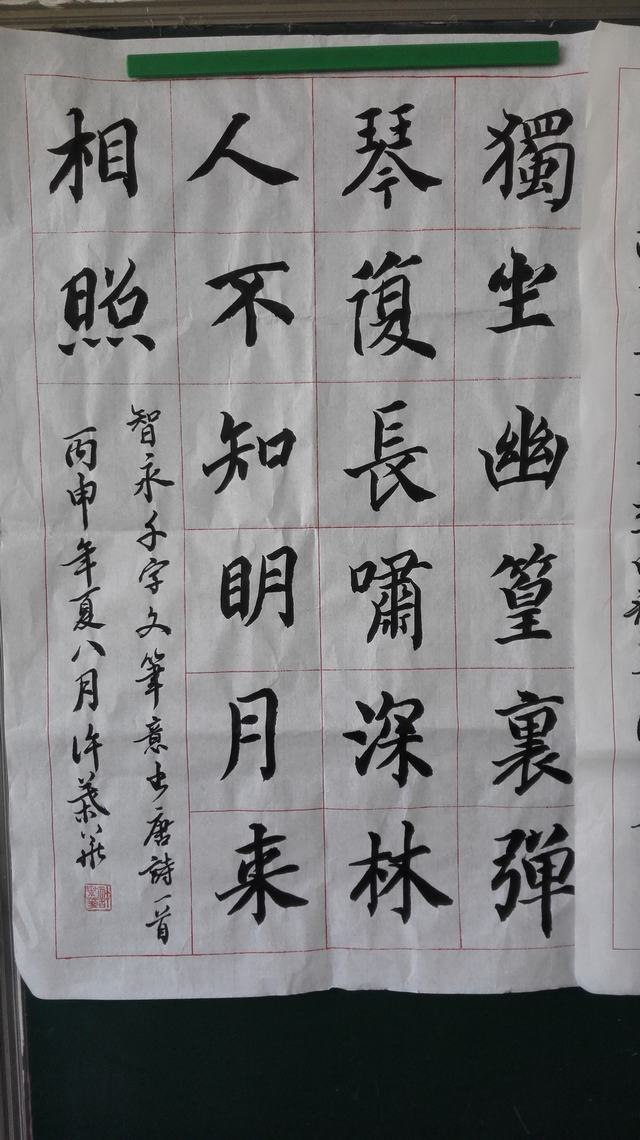 獨坐幽篁裏彈
琴復長嘯深林
人不知明月来
相照
智永千字文筆意書唐詩一首
丙申年夏八月許